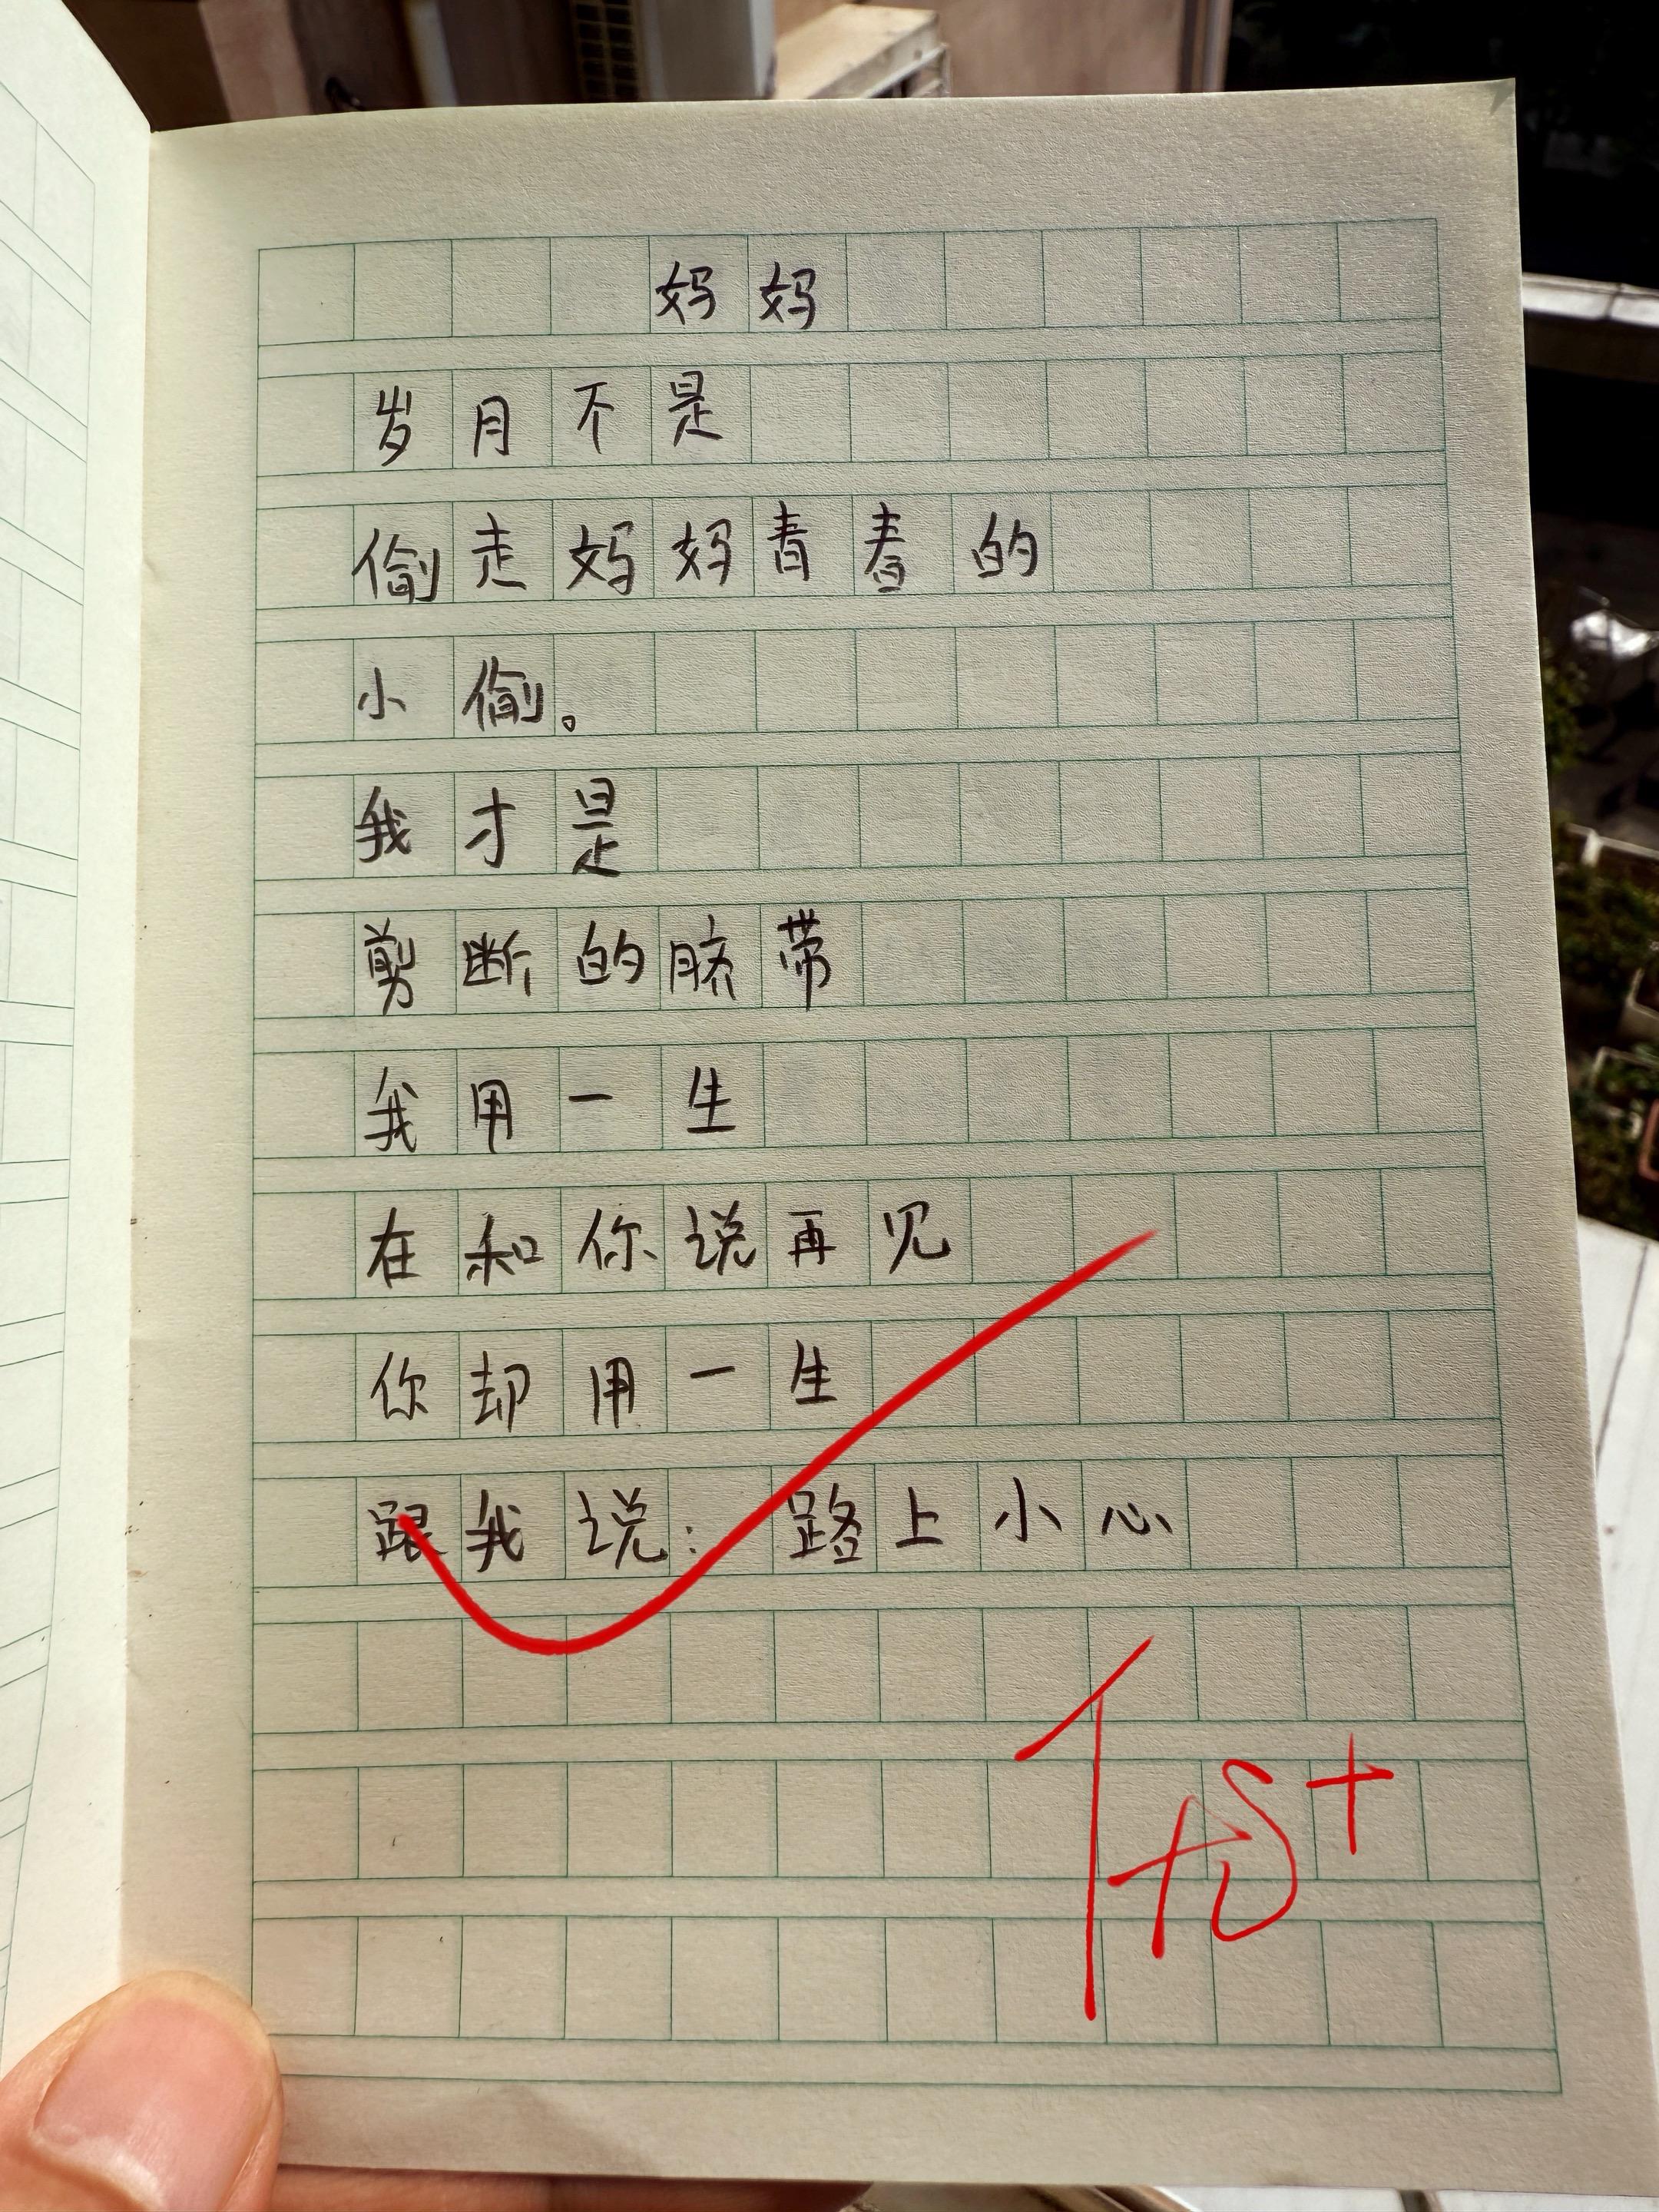 妈妈
岁月不是
偷走妈妈青春的
小偷。
我才是
剪断的脐带
我用一生
在和你说再见
你却用一生
跟我说：路上小心